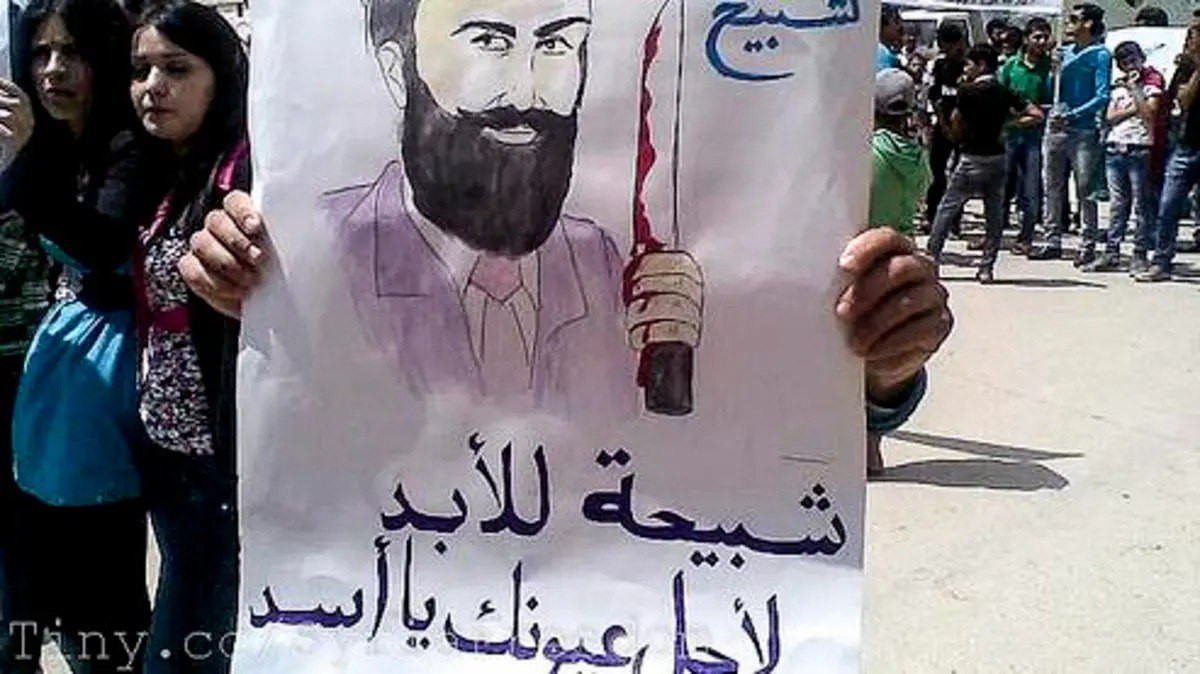 شبيح
شبيحة للأبد
لأجل عيونك يا أسد
Tiny.cc/